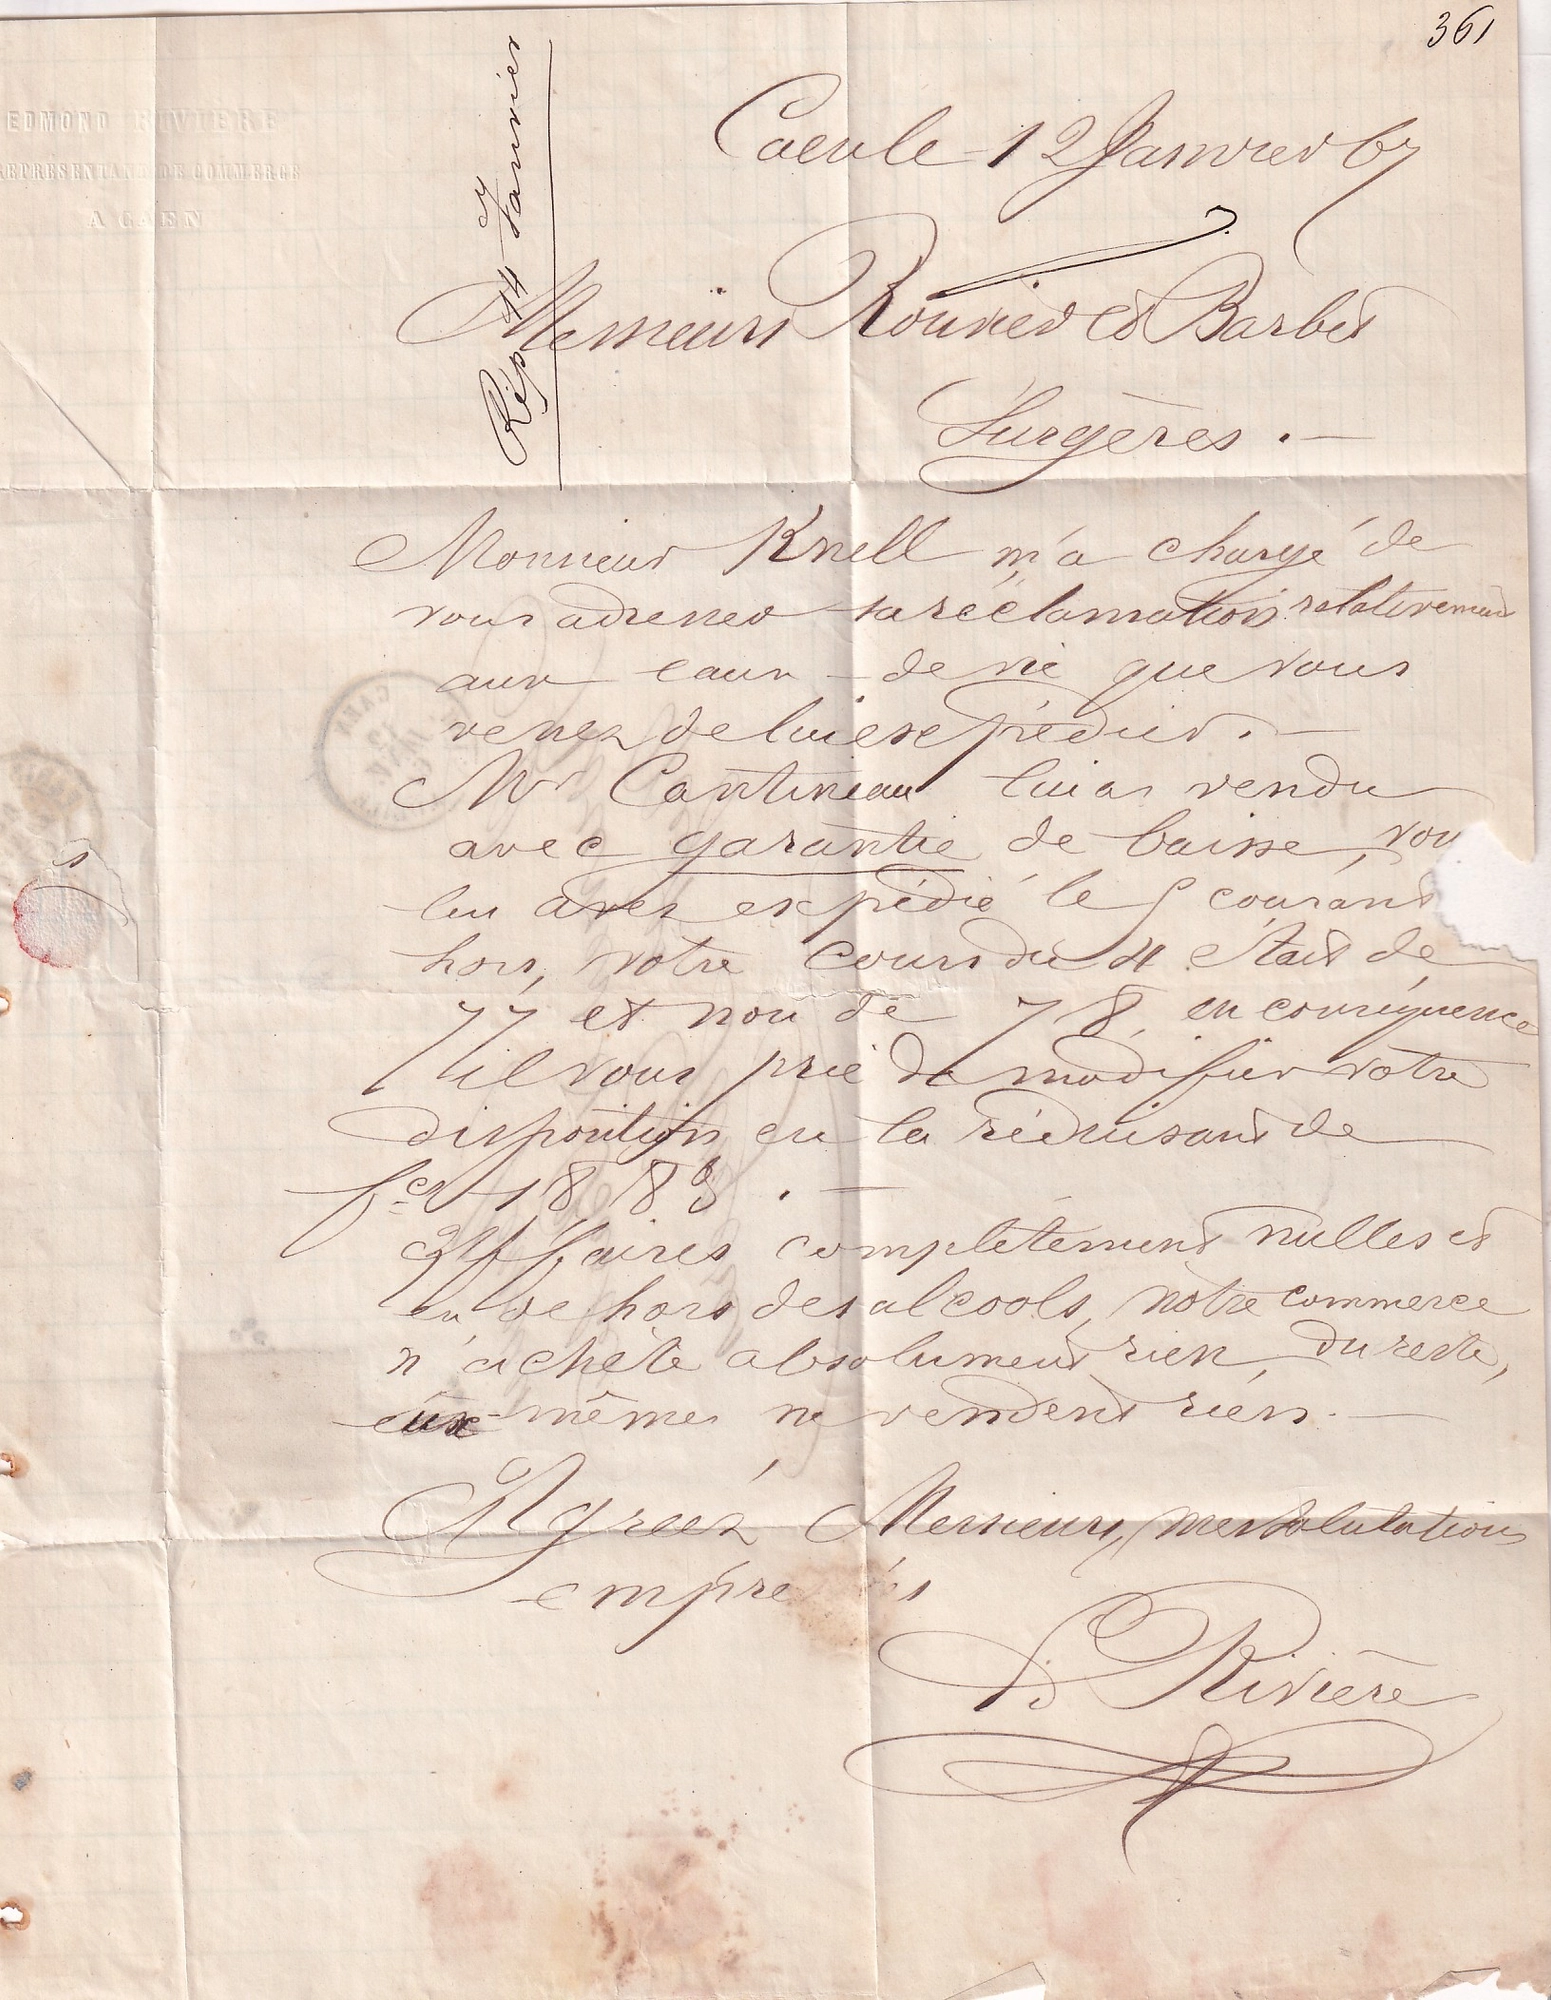 361
EDMOND RIVIERE
REPRESENTANT DE COMMERCE
A CAEN
Rép 14 Janvier
Caen le 12 Janvier 67
Messieurs Rouvier et Barbet
Surgères . —
Monsieur Knell m'a chargé de
vous adresser sa réclamation relativement
aux eaux-de vie que vous
venez de lui expédier. —
Mr Cantineau lui as vendu
avec garantie de baisse, vou
lui avez expédié le 5 courant
hors, votre cours du 4 était de
77 et non de 78, en conséquence
il vous prie de modifier votre
disposition en la réduisant de
fcs 18.83 . —
Affaires complètement nulles et
en dehors des alcools, notre commerce
n'achète absolument rien, du reste,
eux-mêmes ne vendent rien. —
Agréez Messieurs, mes salutations
empre és
Rivière
CAEN
12
JANV